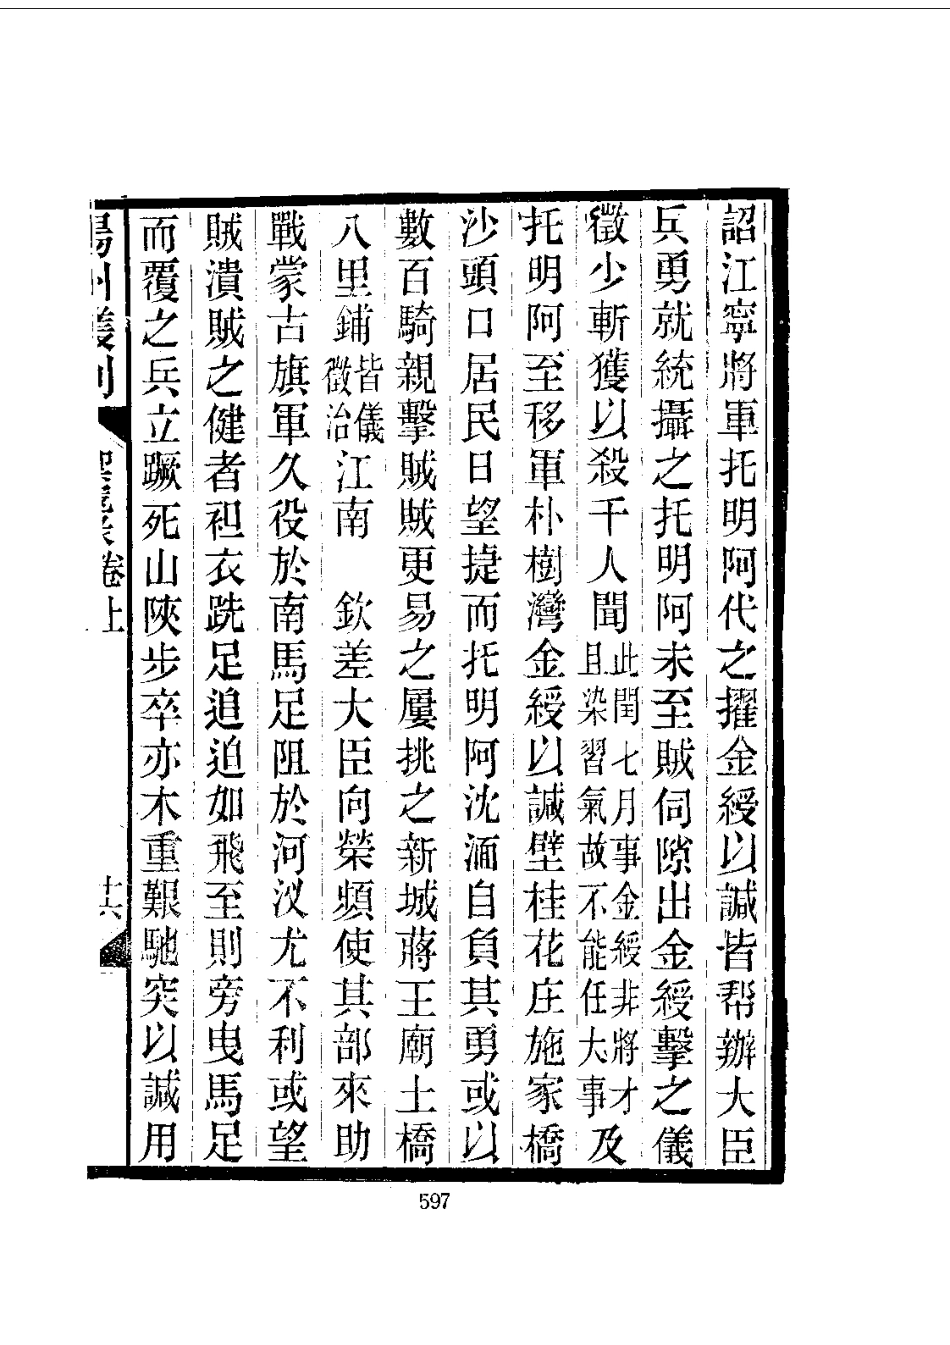 詔江寧將軍托明阿代之擢金綬以諴皆帮辦大臣
兵勇就統攝之托明阿未至賊伺隙出金綬擊之儀
徵少斬獲以殺千人聞此閏七月事金綬非將才且染習氣故不能任大事及
托明阿至移軍朴樹灣金綬以諴壁桂花庄施家橋
沙頭口居民日望捷而托明阿沈湎自負其勇或以
數百騎親擊賊賊更易之屢挑之新城蔣王廟土橋
八里鋪皆儀徵治江南 欽差大臣向榮頻使其部來助
戰蒙古旗軍久役於南馬足阻於河汊尤不利或望
賊潰賊之健者袒衣跣足追迫如飛至則旁曳馬足
而覆之兵立蹶死山陝步卒亦木重艱馳突以諴用
揚州叢刊
卷上
十六
597